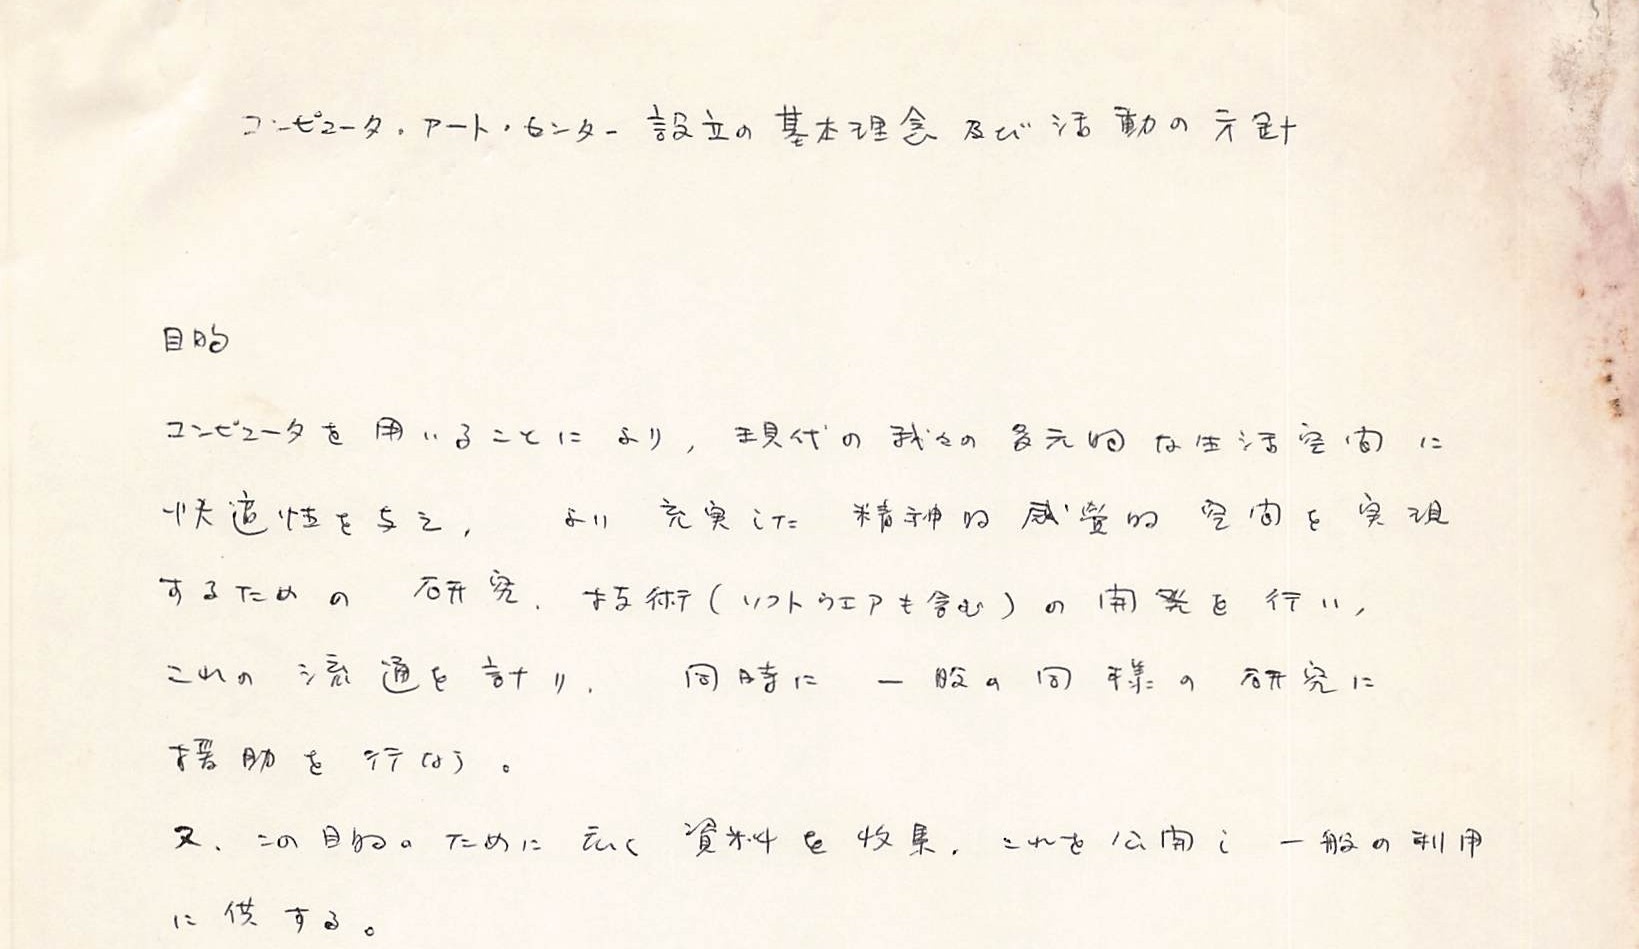 コンピュータ・アート・センター設立の基本理念及び活動の方針
目的
コンピュータを用いることにより，現代の我々の多元的な生活空間に
快適性を与え，より充実した精神的感覚的空間を実現
するための研究、技術（ソフトウエアも含む）の開発を行い，
これの流通を計り、同時に一般の同様の研究に
援助を行なう。
又、この目的のために広く資料を収集、これを公開し一般の利用
に供する。